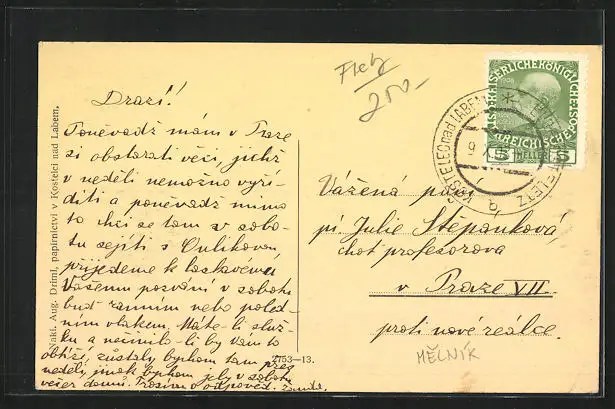 Drazí!
Poněvadž mám v Praze
si obstarati věci, jichž
v neděli nemožno vyří-
diti a poněvadž mimo
to chci se tam v sobo-
tu sejíti s
přijedeme k laskavému
Vašemu pozvání v sobotu
buď ranním nebo poled-
ním vlakem. Máte-li služ-
ku a nečinilo-li by Vám to
obtíží, zůstaly bychom tam přes
neděli, jinak bychom jely v sobotu
večer domů. Prosím o odpověď.
Nakl. Aug. Driml, papírnictví v Kostelci nad Labem.
2753-13.
Fleky
200-
KAISERLICHE KÖNIGLICHE
ÖSTERREICHISCHE
1908
5 HELLER 5
KOSTELEC nad LABEM
ELBEKOSTELETZ
9
a
Vážená paní
pí Julie Štěpánková,
choť profesorova
v Praze VII
proti nové reálce.
MĚLNÍK